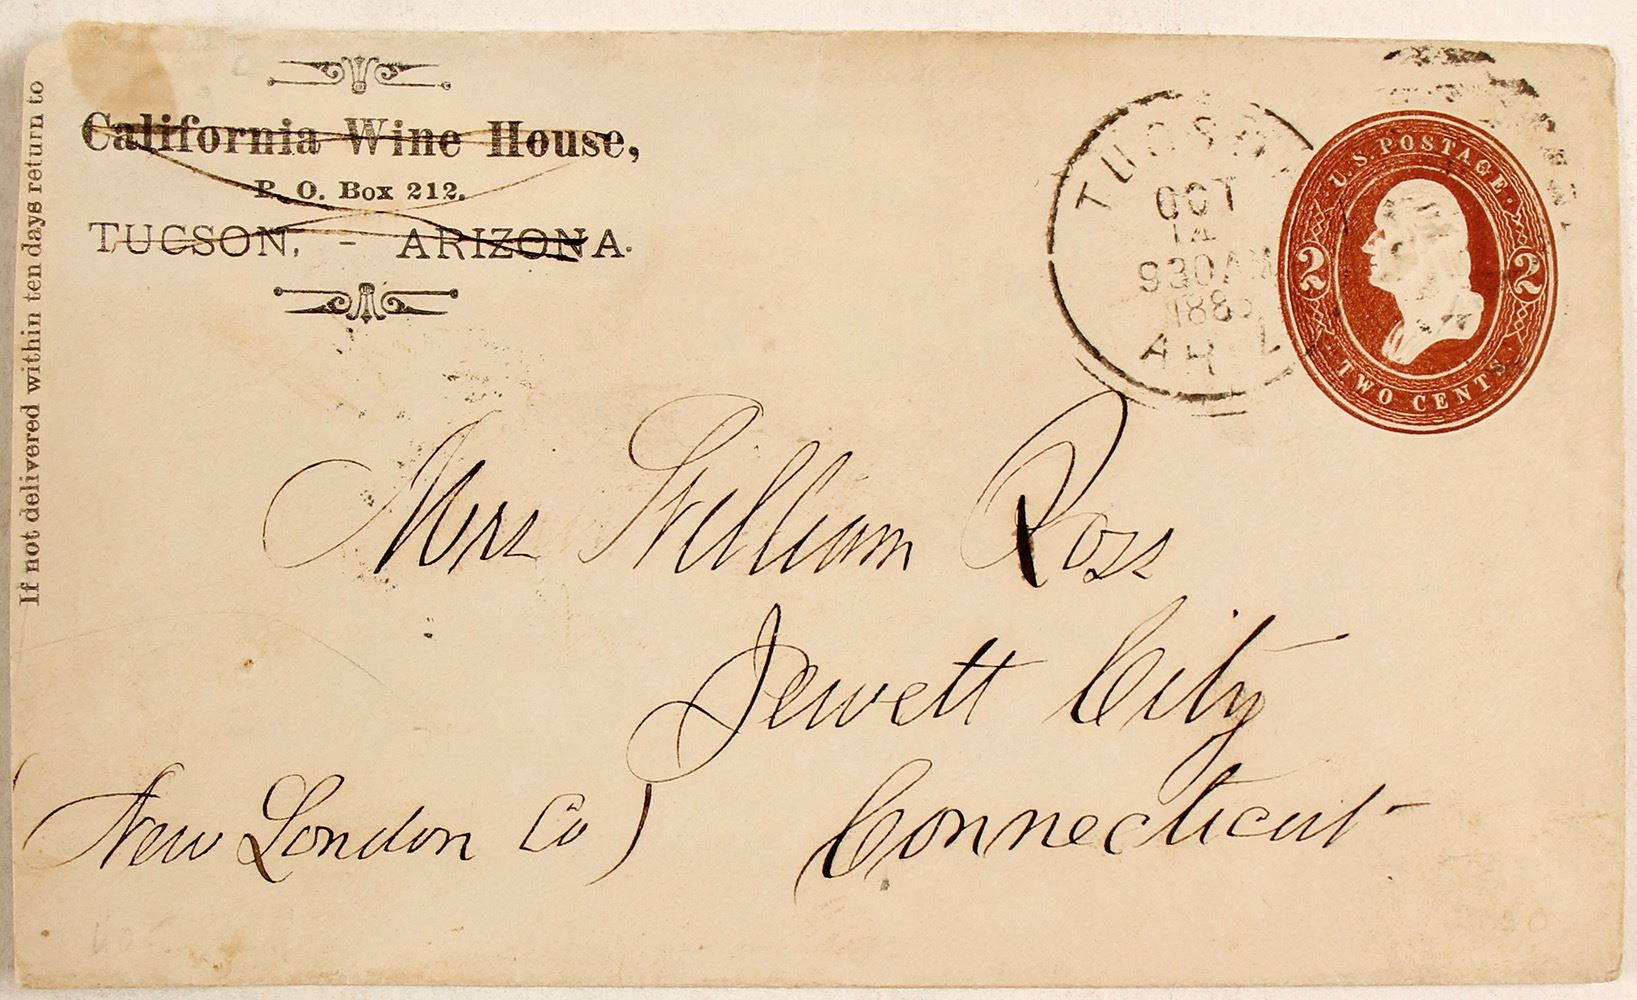 If not delivered within ten days return to
California Wine House,
P. O. Box 212.
TUCSON, - ARIZONA.
TUCSON
OCT
14
930AM
188
ARIZ
U.S. POSTAGE.
2 2
TWO CENTS.
Mrs William Ross
Jewett City
(New London Co) Connecticut